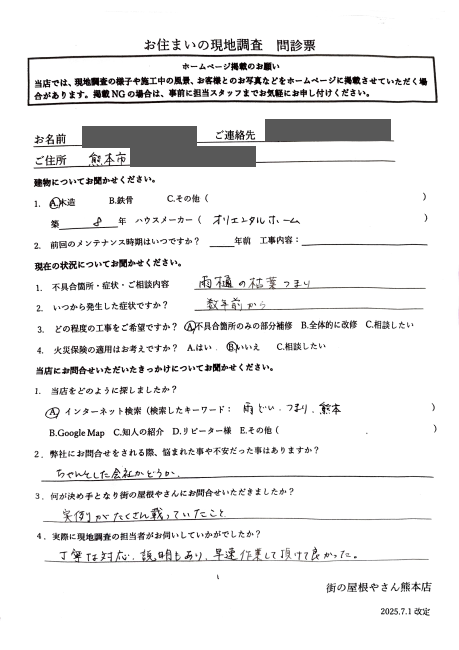 お住まいの現地調査　問診票
ホームページ掲載のお願い
当店では、現地調査の様子や施工中の風景、お客様とのお写真などをホームページに掲載させていただく場
合があります。掲載NGの場合は、事前に担当スタッフまでお気軽にお申し付けください。
お名前　ご連絡先
ご住所　熊本市
建物についてお聞かせください。
1. A.木造　B.鉄骨　C.その他（　）
築 8 年　ハウスメーカー（ オリエンタルホーム ）
2. 前回のメンテナンス時期はいつですか？　年前　工事内容：
現在の状況についてお聞かせください。
1. 不具合箇所・症状・ご相談内容　雨樋の枯葉つまり
2. いつから発生した症状ですか？　数年前から
3. どの程度の工事をご希望ですか？ A.不具合箇所のみの部分補修 B.全体的に改修 C.相談したい
4. 火災保険の適用はお考えですか？ A.はい B.いいえ C.相談したい
当店にお問合せいただいたきっかけについてお聞かせください。
1. 当店をどのように探しましたか？
A. インターネット検索（検索したキーワード： 雨どい、つまり、熊本 ）
B.Google Map　C.知人の紹介　D.リピーター様　E.その他（　）
2. 弊社にお問合せをされる際、悩まれた事や不安だった事はありますか？
ちゃんとした会社かどうか。
3. 何が決め手となり街の屋根やさんにお問合せいただきましたか？
実例がたくさん載っていたこと
4. 実際に現地調査の担当者がお伺いしていかがでしたか？
丁寧な対応、説明もあり、早速作業して頂けて良かった。
街の屋根やさん熊本店
2025.7.1 改定